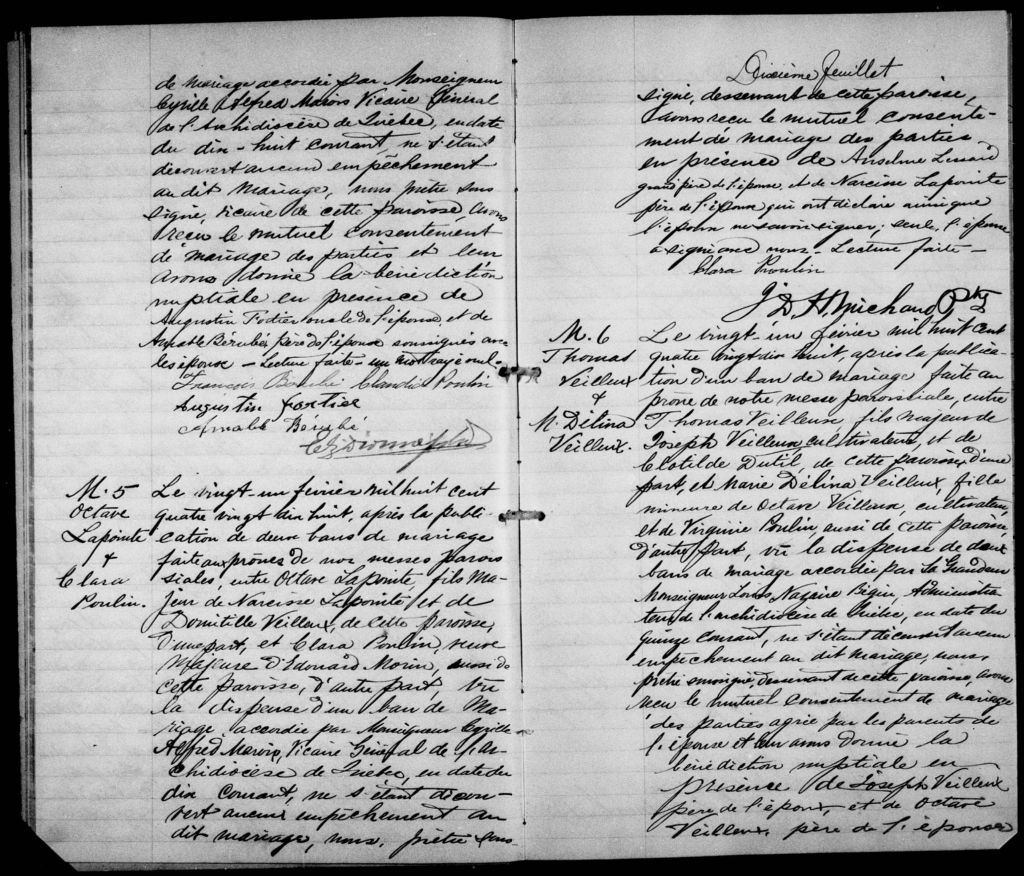 de mariage accordée par Monseigneur
Cyrille Alfred Marois Vicaire Général
de l'Archidiocèse de Québec, en date
du dix-huit courant, ne s'étant
découvert aucun empêchement
au dit mariage, nous prêtre sous
signé, vicaire de cette paroisse avons
reçu le mutuel consentement
de mariage des parties et leur
avons donné la bénédiction
nuptiale en présence de
Augustin Fortier oncle de l'épouse, et de
Amable Bérubé, père de l'époux soussignés avec
les époux – Lecture faite – un mot rayé nul.
François Bérubé Claudia Poulin
Augustin Fortier
Amable Bérubé
M. 5
Octave
Lapointe
&
Clara
Poulin.
Le vingt-un février mil huit cent
quatre vingt dix huit, après la publi-
cation de deux bans de mariage
faite aux prônes de nos messes parois
siales, entre Octave Lapointe, fils Ma-
jeur de Narcisse Lapointe et de
Domitille Veilleux, de cette paroisse,
d'une part, et Clara Poulin, veuve
Majeure d'Edouard Morin, aussi de
cette paroisse, d'autre part, vu
la dispense d'un ban de Ma-
riage accordée par Monseigneur Cyrille
Alfred Marois, Vicaire Général de l'Ar-
chidiocèse de Québec, en date du
dix courant, ne s'étant décou-
vert aucun empêchement au
dit mariage, nous, prêtre sous
Dixième feuillet
signé, desservant de cette paroisse,
avons reçu le mutuel consente-
ment de mariage des parties
en présence de Anselme Lessard
grand père de l'épouse, et de Narcisse Lapointe
père de l'époux qui ont déclaré ainsi que
l'époux ne savoir signer, seule, l'épouse
a signé avec nous. – Lecture faite –
Clara Poulin
J. D. H. Michaud Ptre
M. 6
Thomas
Veilleux
&
M. Délina
Veilleux.
Le vingt-un février mil huit cent
quatre vingt dix huit, après la publica-
tion d'un ban de mariage faite au
prône de notre messe paroissiale, entre
Thomas Veilleux, fils majeur de
Joseph Veilleux cultivateur, et de
Clotilde Dutil, de cette paroisse, d'une
part, et Marie Délina Veilleux, fille
mineure de Octave Veilleux, cultivateur,
et de Virginie Poulin, aussi de cette paroisse,
d'autre part, vu la dispense de deux
bans de mariage accordée par Sa Grandeur
Monseigneur Louis, Nazaire Bégin, Administra-
teur de l'archidiocèse de Québec, en date du
quinze courant, ne s'étant découvert aucun
empêchement au dit mariage, nous,
prêtre soussigné, desservant de cette paroisse, avons
reçu le mutuel consentement de mariage
des parties agréé par les parents de
l'épouse et leur avons donné la
bénédiction nuptiale en
présence de Joseph Veilleux
père de l'époux, et de Octave
Veilleux, père de l'épouse